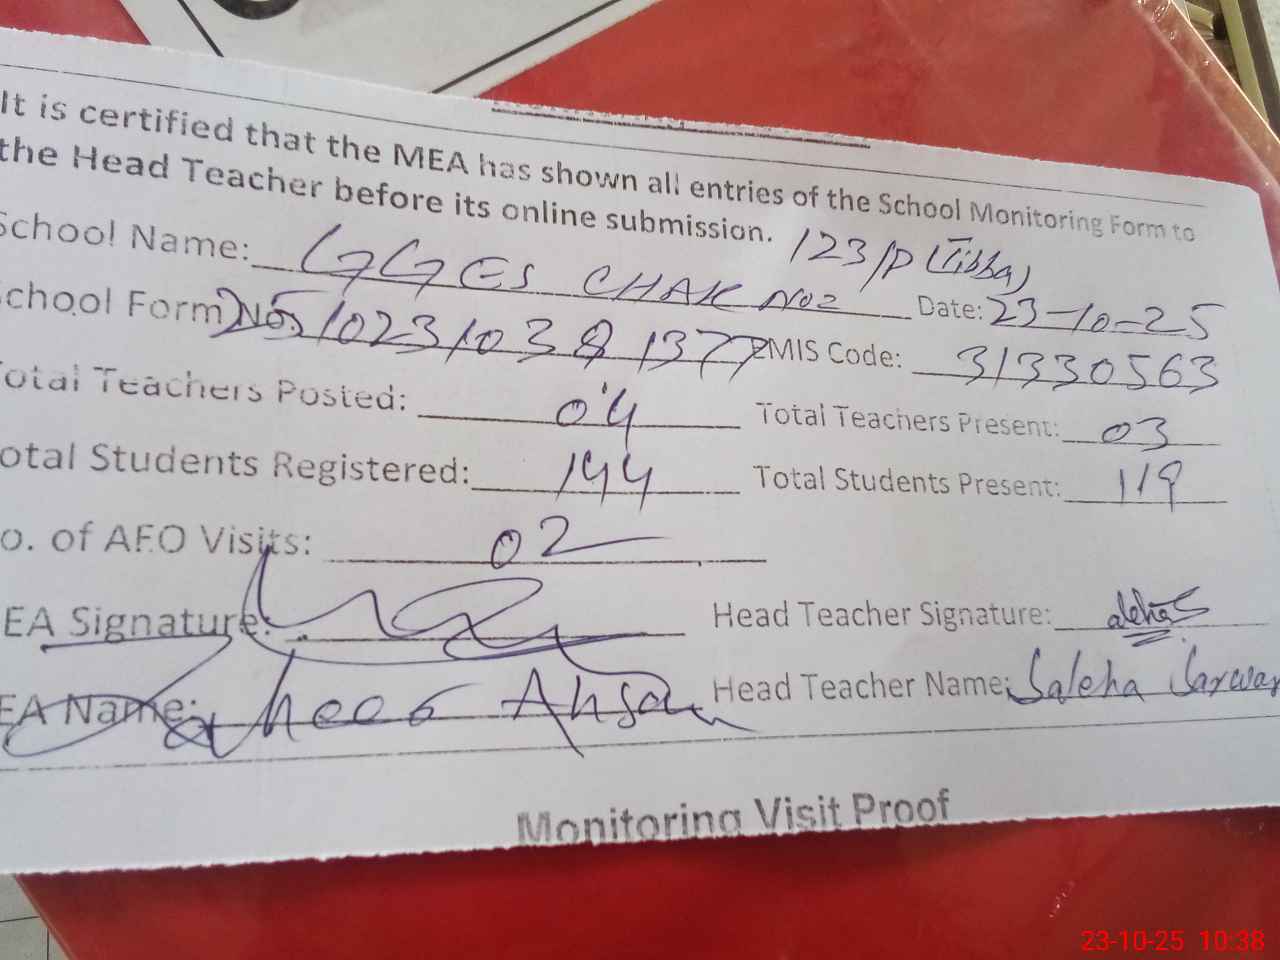 It is certified that the MEA has shown all entries of the School Monitoring Form to
the Head Teacher before its online submission.
School Name: GGES CHAK NO2 123/P (Tibba) Date: 23-10-25
School Form No. EMIS Code: 31330563
Total Teachers Posted: 04 Total Teachers Present: 03
Total Students Registered: 144 Total Students Present: 119
No. of AEO Visits: 02
EA Signature: Head Teacher Signature:
EA Name: Ahsan Head Teacher Name: Saleha Sarwar
Monitoring Visit Proof
23-10-25 10:38